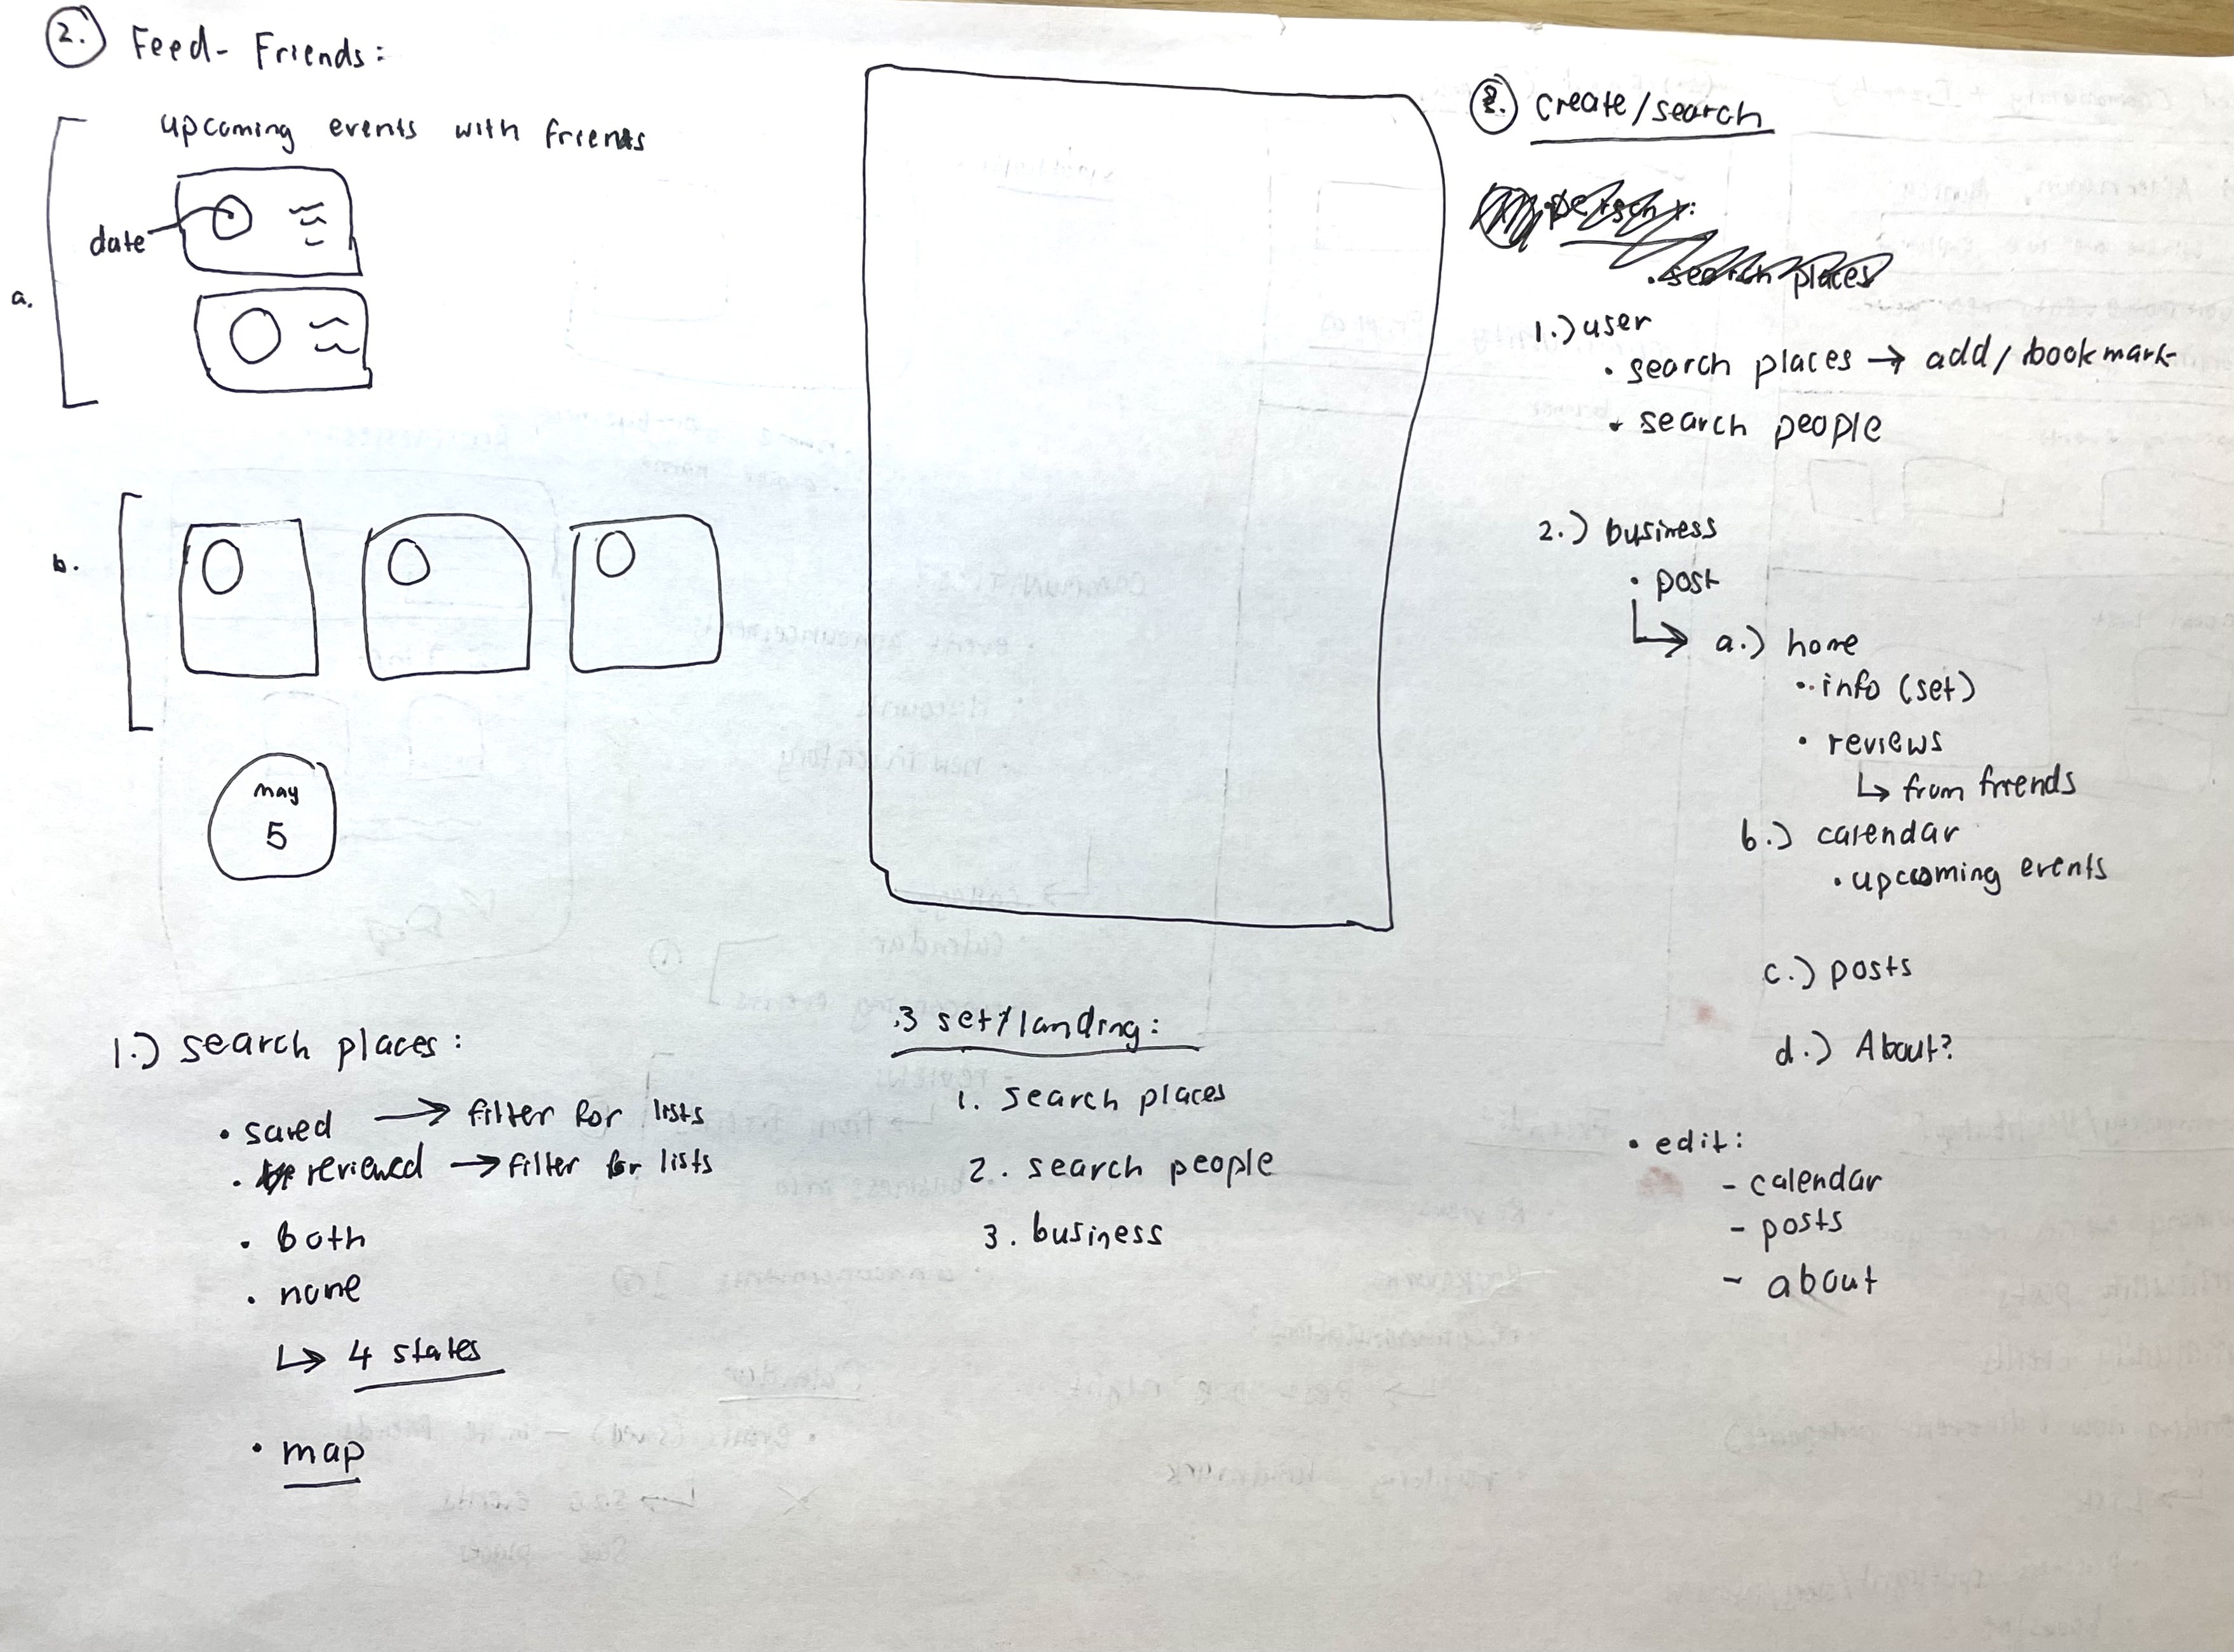 2. Feed- Friends:
upcoming events with friends
date
a.
b.
May
5
1.) search places:
• saved → filter for lists
• reviewed → filter for lists
• both
• none
↳ 4 states
• map
3 set/landing:
1. search places
2. search people
3. business
create/search
• search places
1.) user
• search places → add/bookmark
• search people
2.) business
• post
↳ a.) home
• info (set)
• reviews
↳ from friends
b.) calendar
• upcoming events
c.) posts
d.) About?
• edit:
- calendar
- posts
- about